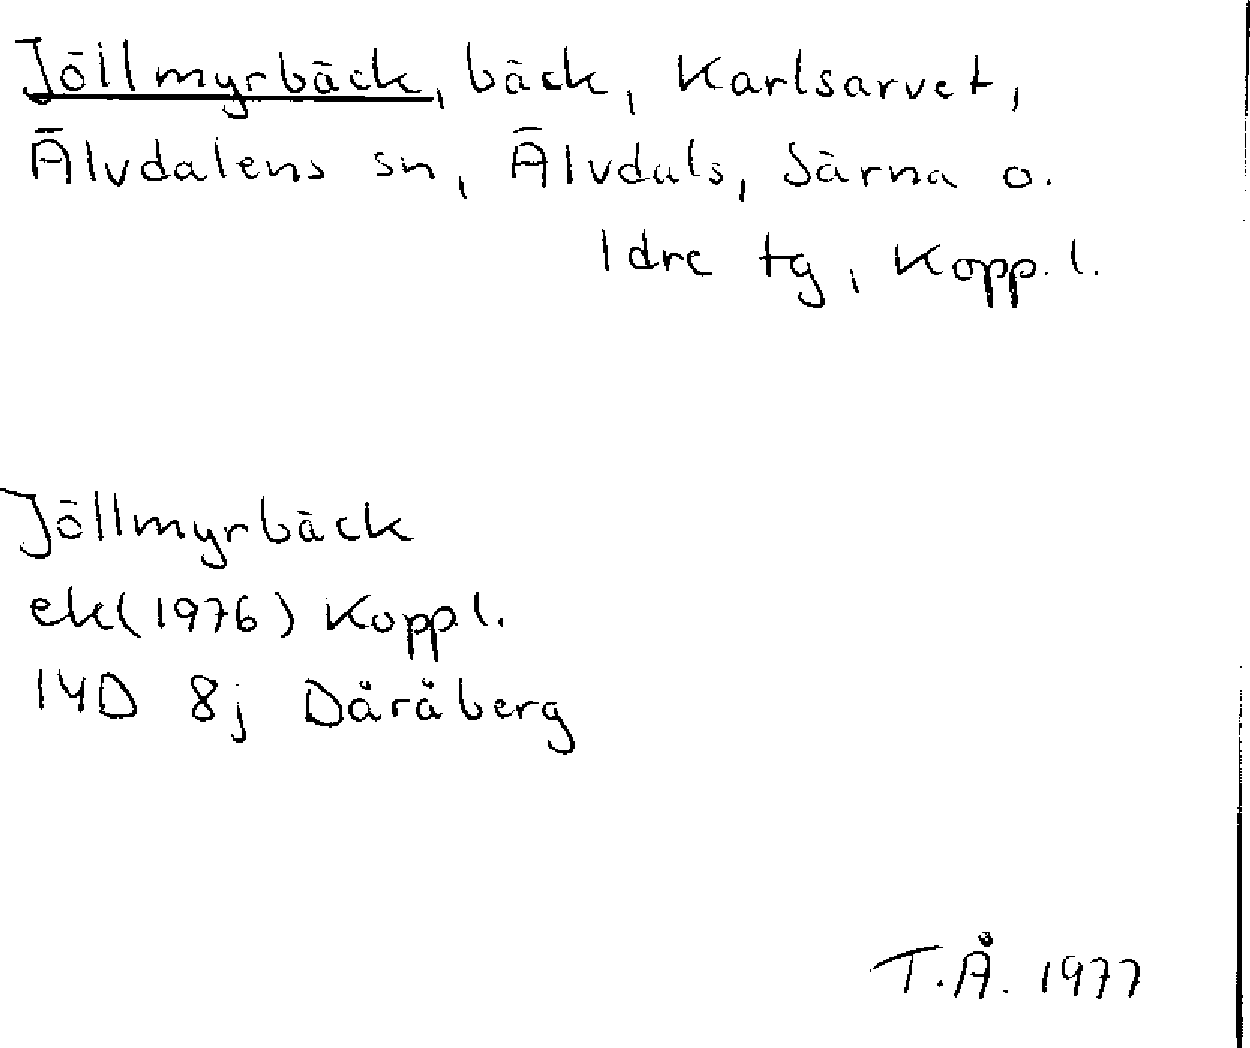 Jöllmyrbäck, bäck, Karlsarvet,
Älvdalens sn, Älvdals, Särna o.
Idre tg, Kopp. l.
Jöllmyrbäck
ek(1976) Kopp l.
14D 8j Dåråberg
T.Å. 1977